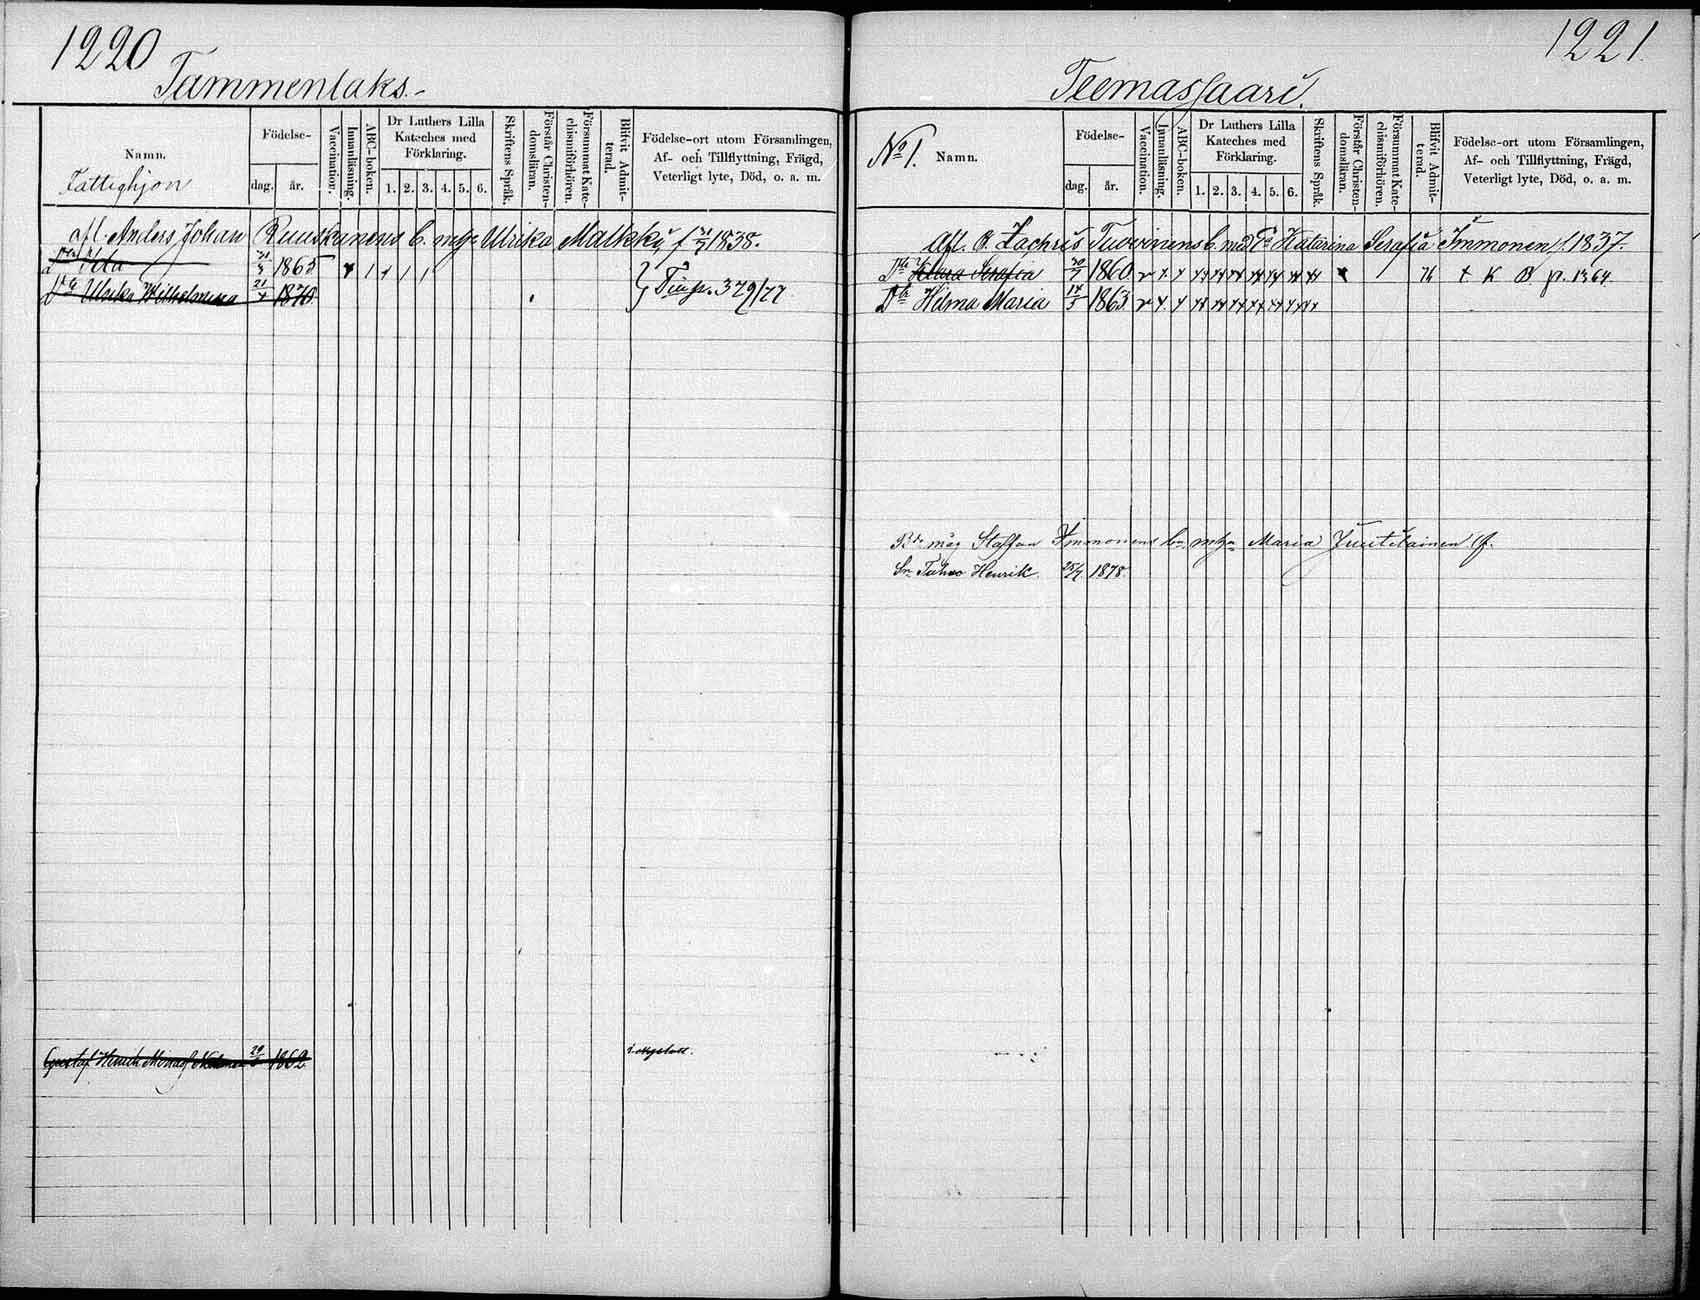 1220
Tammenlaks.
Namn.
Fattighjon
Födelse-
dag. år.
Vaccination.
Innanläsning.
ABC-boken.
Dr Luthers Lilla Kateches med Förklaring.
1. 2. 3. 4. 5. 6.
Skriftens Språk.
Förstår Christendomsläran.
Försummat Katechismiförhören.
Blifvit Admitterad.
Födelse-ort utom Församlingen,
Af- och Tillflyttning, Frägd,
Veterligt lyte, Död, o. a. m.
afl. Anders Johan Ruuskanens b. m Ulrika Malkki f 1838.
1865
Dtr Ulrika Wilhelmina 21/4 1870
p. 379/77
Gustaf Henrik 1862.
1221.
Teemassaari.
No 1. Namn.
Födelse-
dag. år.
Vaccination.
Innanläsning.
ABC-boken.
Dr Luthers Lilla Kateches med Förklaring.
1. 2. 3. 4. 5. 6.
Skriftens Språk.
Förstår Christendomsläran.
Försummat Katechismiförhören.
Blifvit Admitterad.
Födelse-ort utom Församlingen,
Af- och Tillflyttning, Frägd,
Veterligt lyte, Död, o. a. m.
Afl. B. Zachris Tuovinens b. med Katarina Serafia Immonen f. 1837.
Dtr Klara Serafia 1860 76 p. 1364
Dtr Hilma Maria 14/5 1863
Bde måg Staffan Immonens Maria Juutilainen
Sn Henrik 25/7 1878.